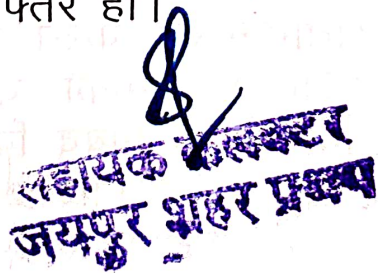 फ्तर हो।
सहायक कलक्टर
जयपुर शहर प्रथम